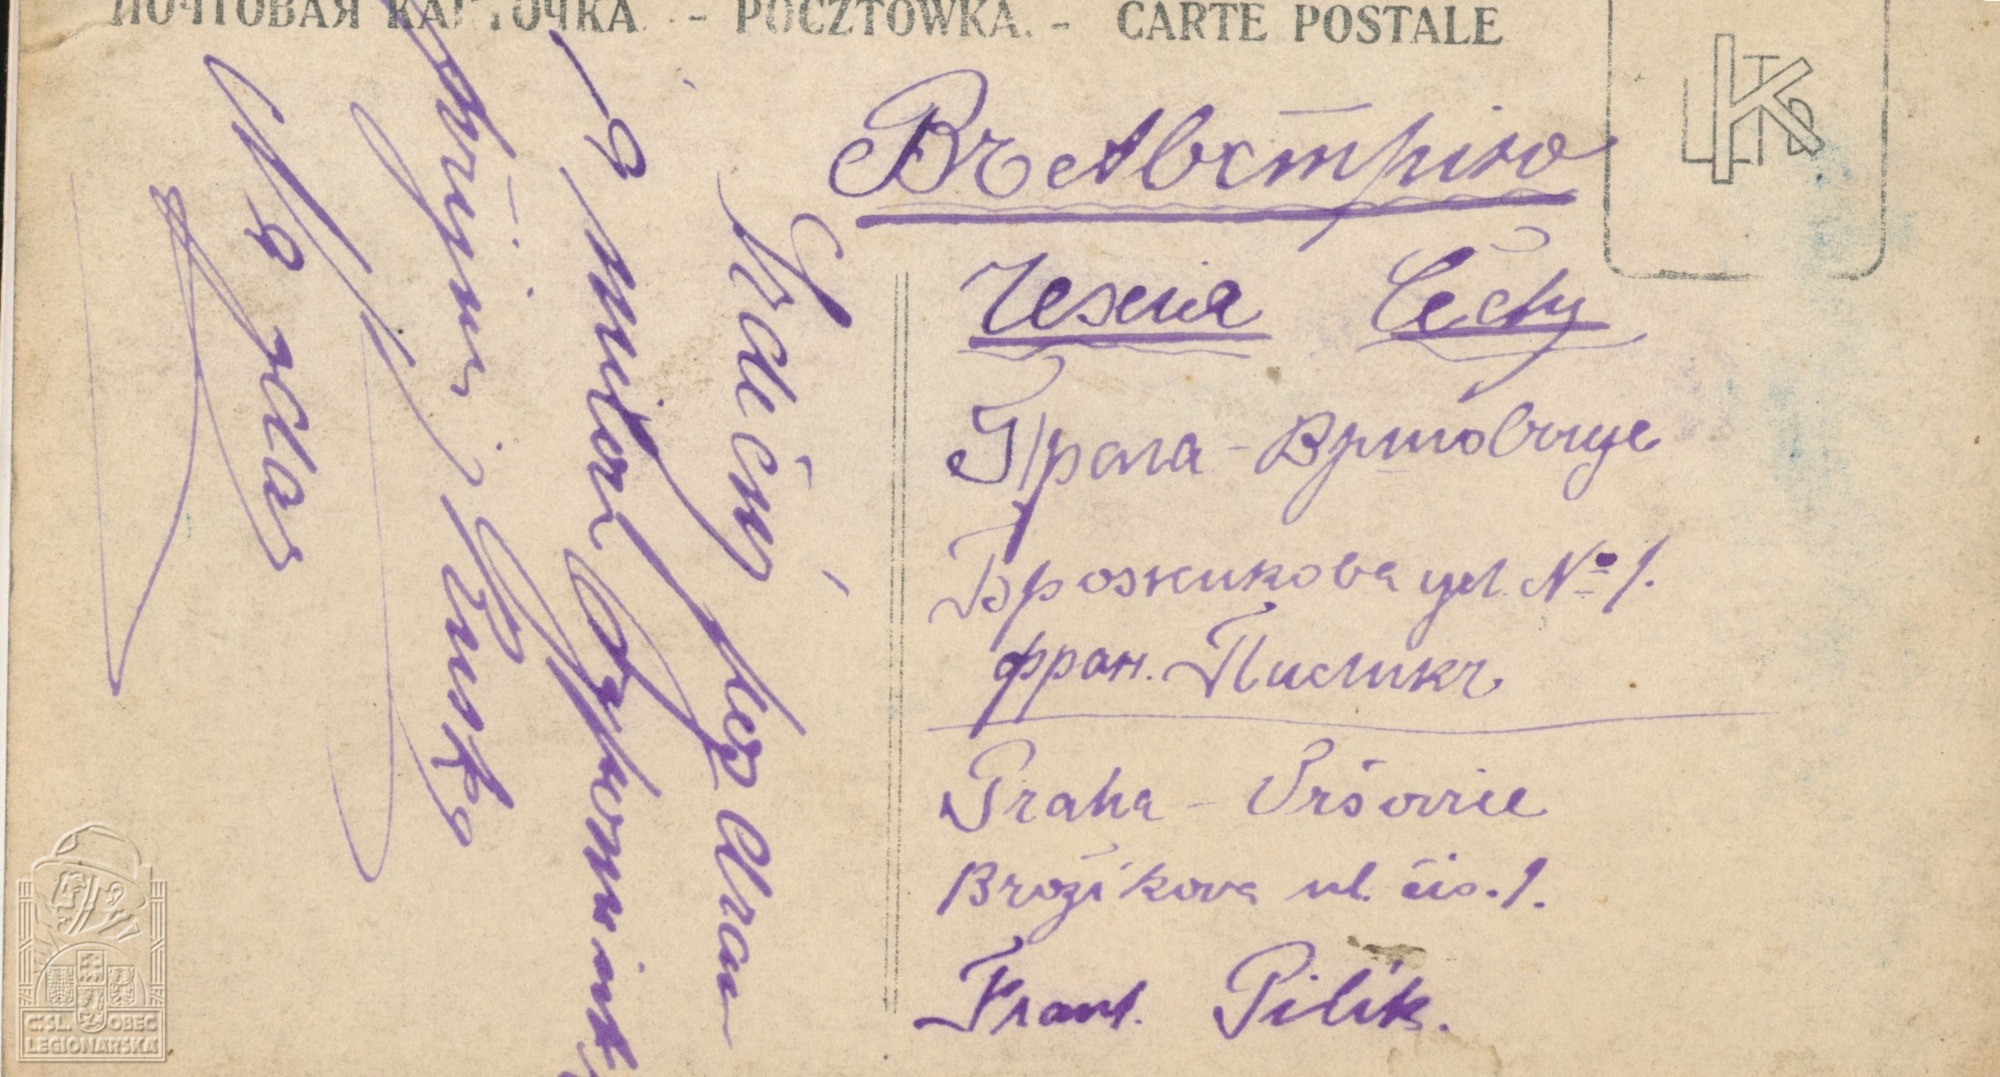 ПОЧТОВАЯ КАРТОЧКА. - POCZTÓWKA. - CARTE POSTALE
Въ Австрiю
Чехия Čechy
Прага - Вршовице
Брожикова ул. № 1.
фран. Пиликъ
Praha - Vršovice
Brožíkova ul. čís. 1.
Frant. Pilík.
Srdečný
a milou vzpomínk
Ruska
Nazdar
ČSL. OBEC
LEGIONÁŘSKÁ